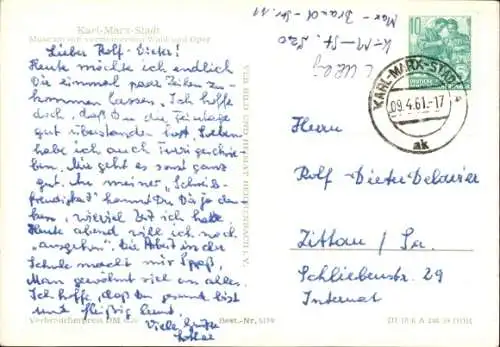 Karl-Marx-Stadt
Museum mit
Lieber Rolf-Dieter!
Heute möchte ich endlich
Dir einmal paar Zeilen zu-
kommen lassen. Ich hoffe
doch, daß Du die Feiertage
gut überstanden hast. Soeben
habe ich auch
Mir geht es sonst ganz
gut. An meiner "Schreib-
freudigkeit" kannst Du Dir ja den-
ken, wieviel Zeit ich habe.
Heute abend will ich noch
"ausgehen". Die Arbeit in der
Schule macht mir Spaß.
Man gewöhnt sich an alles.
Ich hoffe, daß Du gesund bist
und fleißig lernst.
Viele Grüße
Lothar
Verbraucherpreis DM
Best.-Nr.
VEB BILD UND HEIMAT REICHENBACH I. V.
K-M-St.
Max-Brand-Str. 11
10
KARL-MARX-STADT
09.4.61.-17
ak
Herrn
Rolf Dieter
Zittau / Sa.
Schliebenstr. 29
Internat